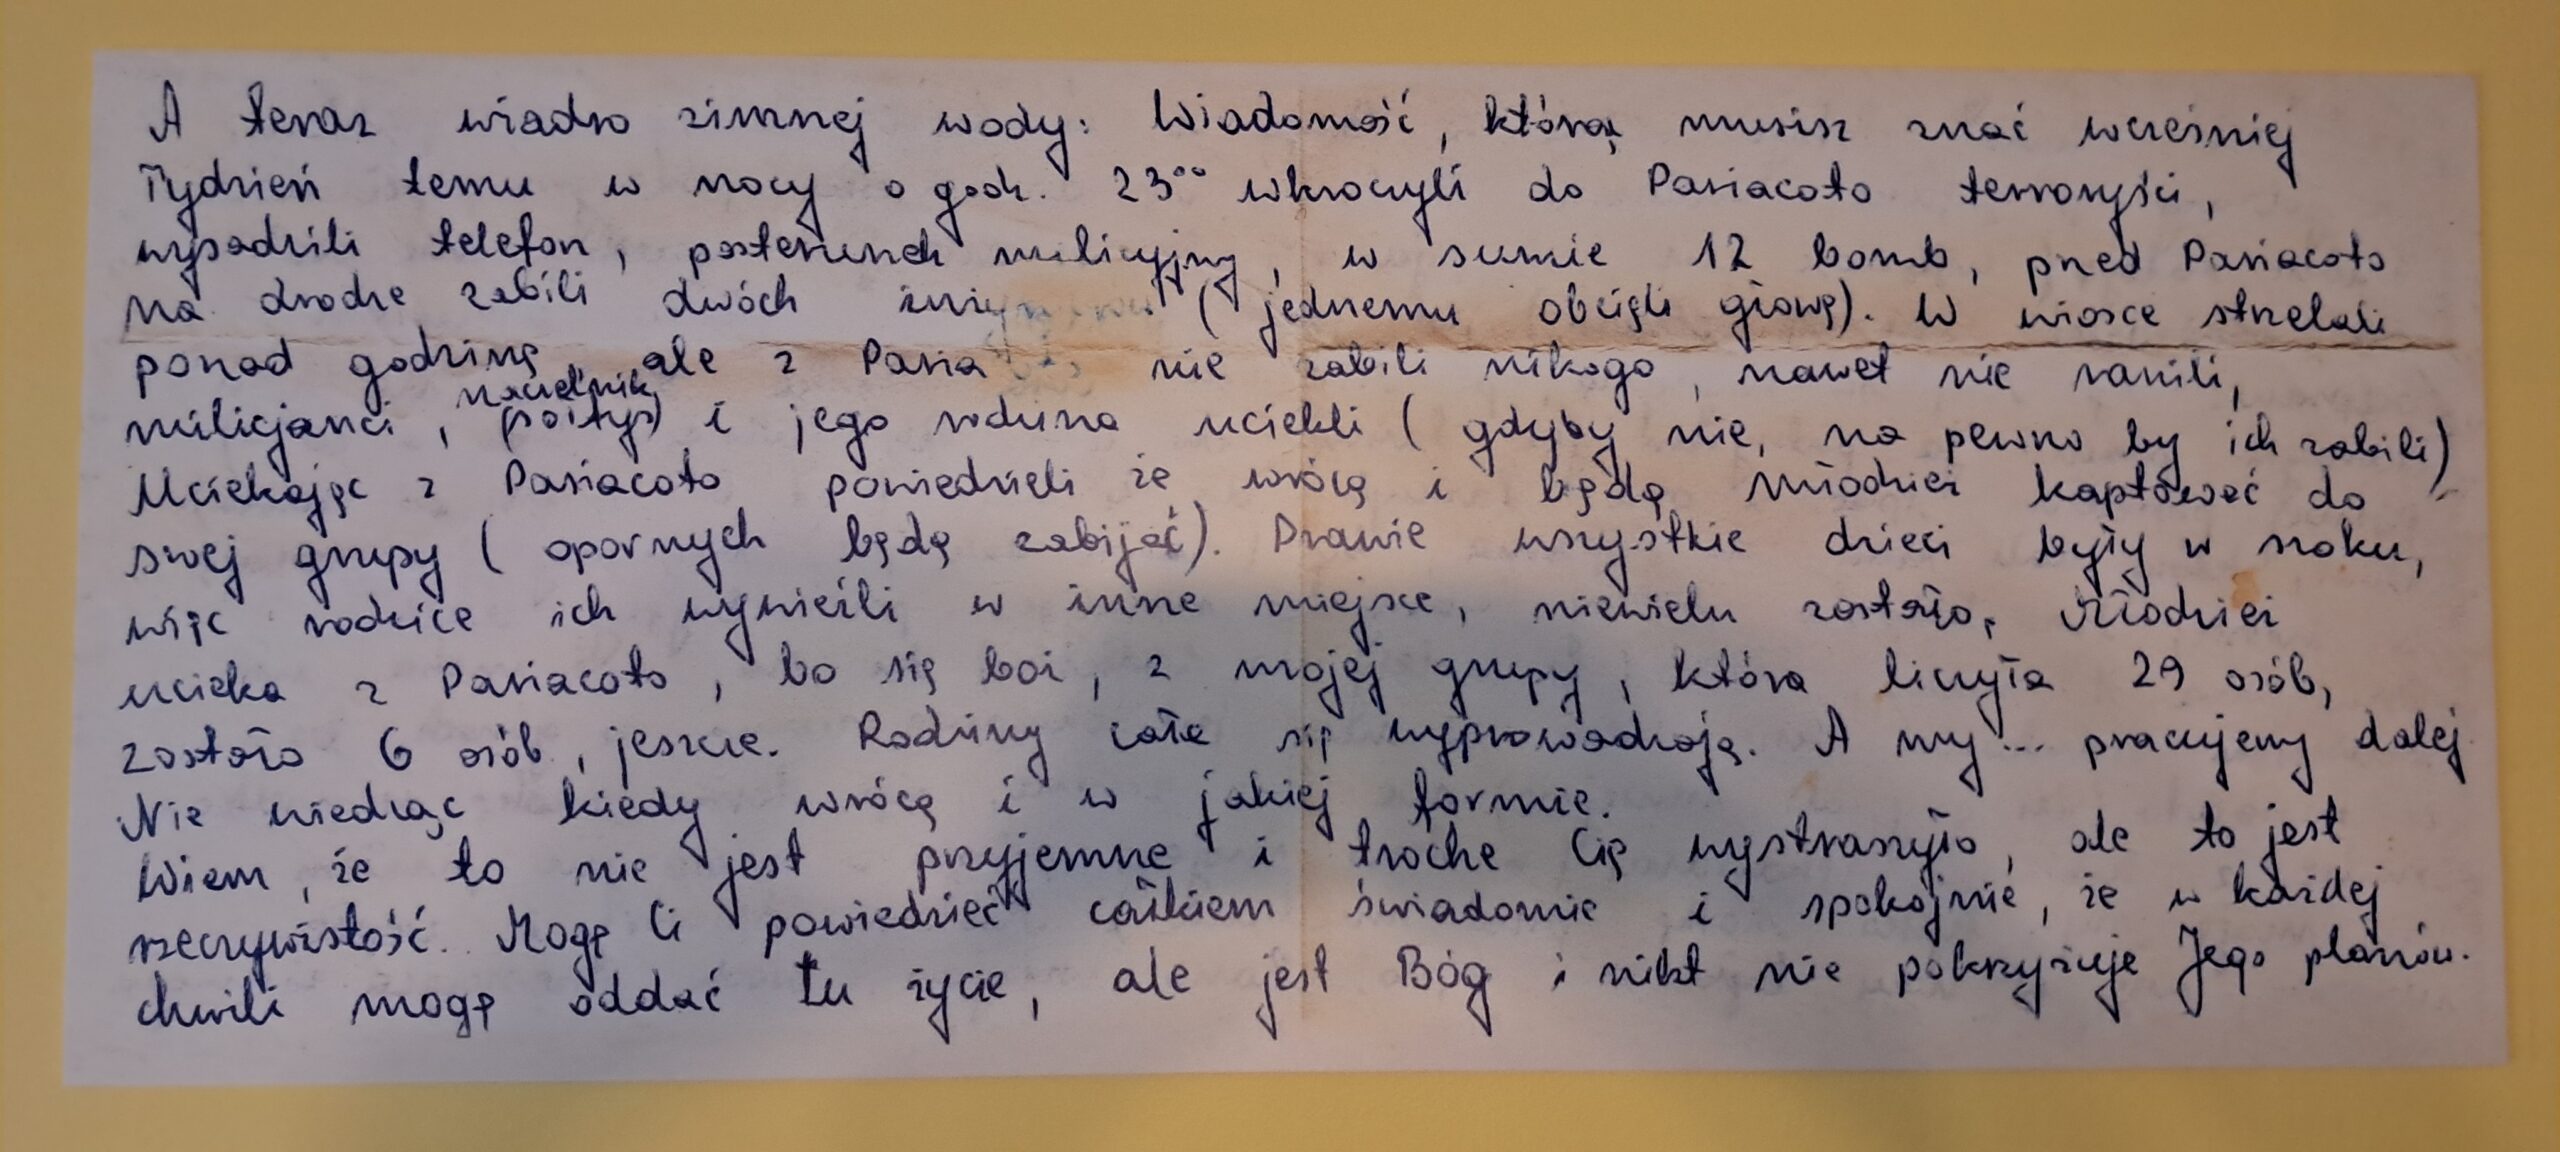 A teraz wiadro zimnej wody: Wiadomość, którą musisz znać wcześniej
Tydzień temu w nocy o godz. 23⁰⁰ wkroczyli do Pariacoto terroryści,
wysadzili telefon, posterunek milicyjny, w sumie 12 bomb, przed Pariacoto
na drodze zabili dwóch (jednemu obcięli głowę). W wiosce strzelali
ponad godzinę, ale z nie zabili nikogo, nawet nie ranili,
naczelnik
milicjanci, (sołtys) i jego rodzina uciekli (gdyby nie, na pewno by ich zabili)
Uciekając z Pariacoto powiedzieli że wrócą i będą młodzież kaptować do
swej grupy (opornych będą zabijać). Prawie wszystkie dzieci były w szoku,
więc rodzice ich wywieźli w inne miejsce, niewielu zostało, Młodzież
ucieka z Pariacoto, bo się boi, z mojej grupy, która liczyła 29 osób,
zostało 6 osób, jeszcze. Rodziny całe się wyprowadzają. A my... pracujemy dalej
Nie wiedząc kiedy wrócą i w jakiej formie.
Wiem, że to nie jest przyjemne i trochę Cię wystraszyło, ale to jest
rzeczywistość. Mogę Ci powiedzieć całkiem świadomie i spokojnie, że w każdej
chwili mogę oddać tu życie, ale jest Bóg i nikt nie pokrzyżuje Jego planów.